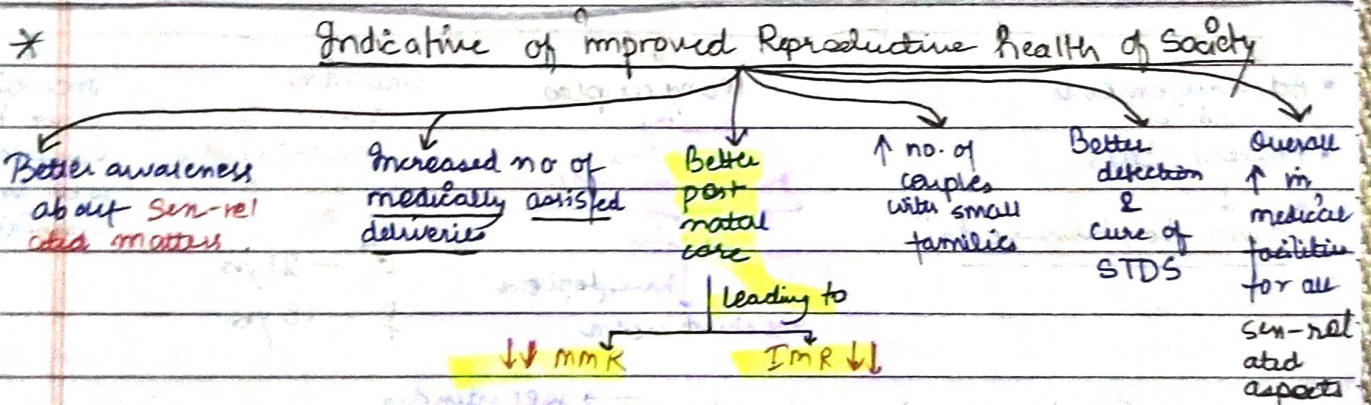 * Indicative of improved Reproductive health of Society
Better awareness
about sex-rel
ated matters.
Increased no of
medically assisted
deliveries
Better
post
natal
care
leading to
↓↓ MMR
IMR ↓↓
↑ no. of
couples
with small
families
Better
detection
&
cure of
STDS
Overall
↑ in
medical
facilities
for all
sex-rel
ated
aspects